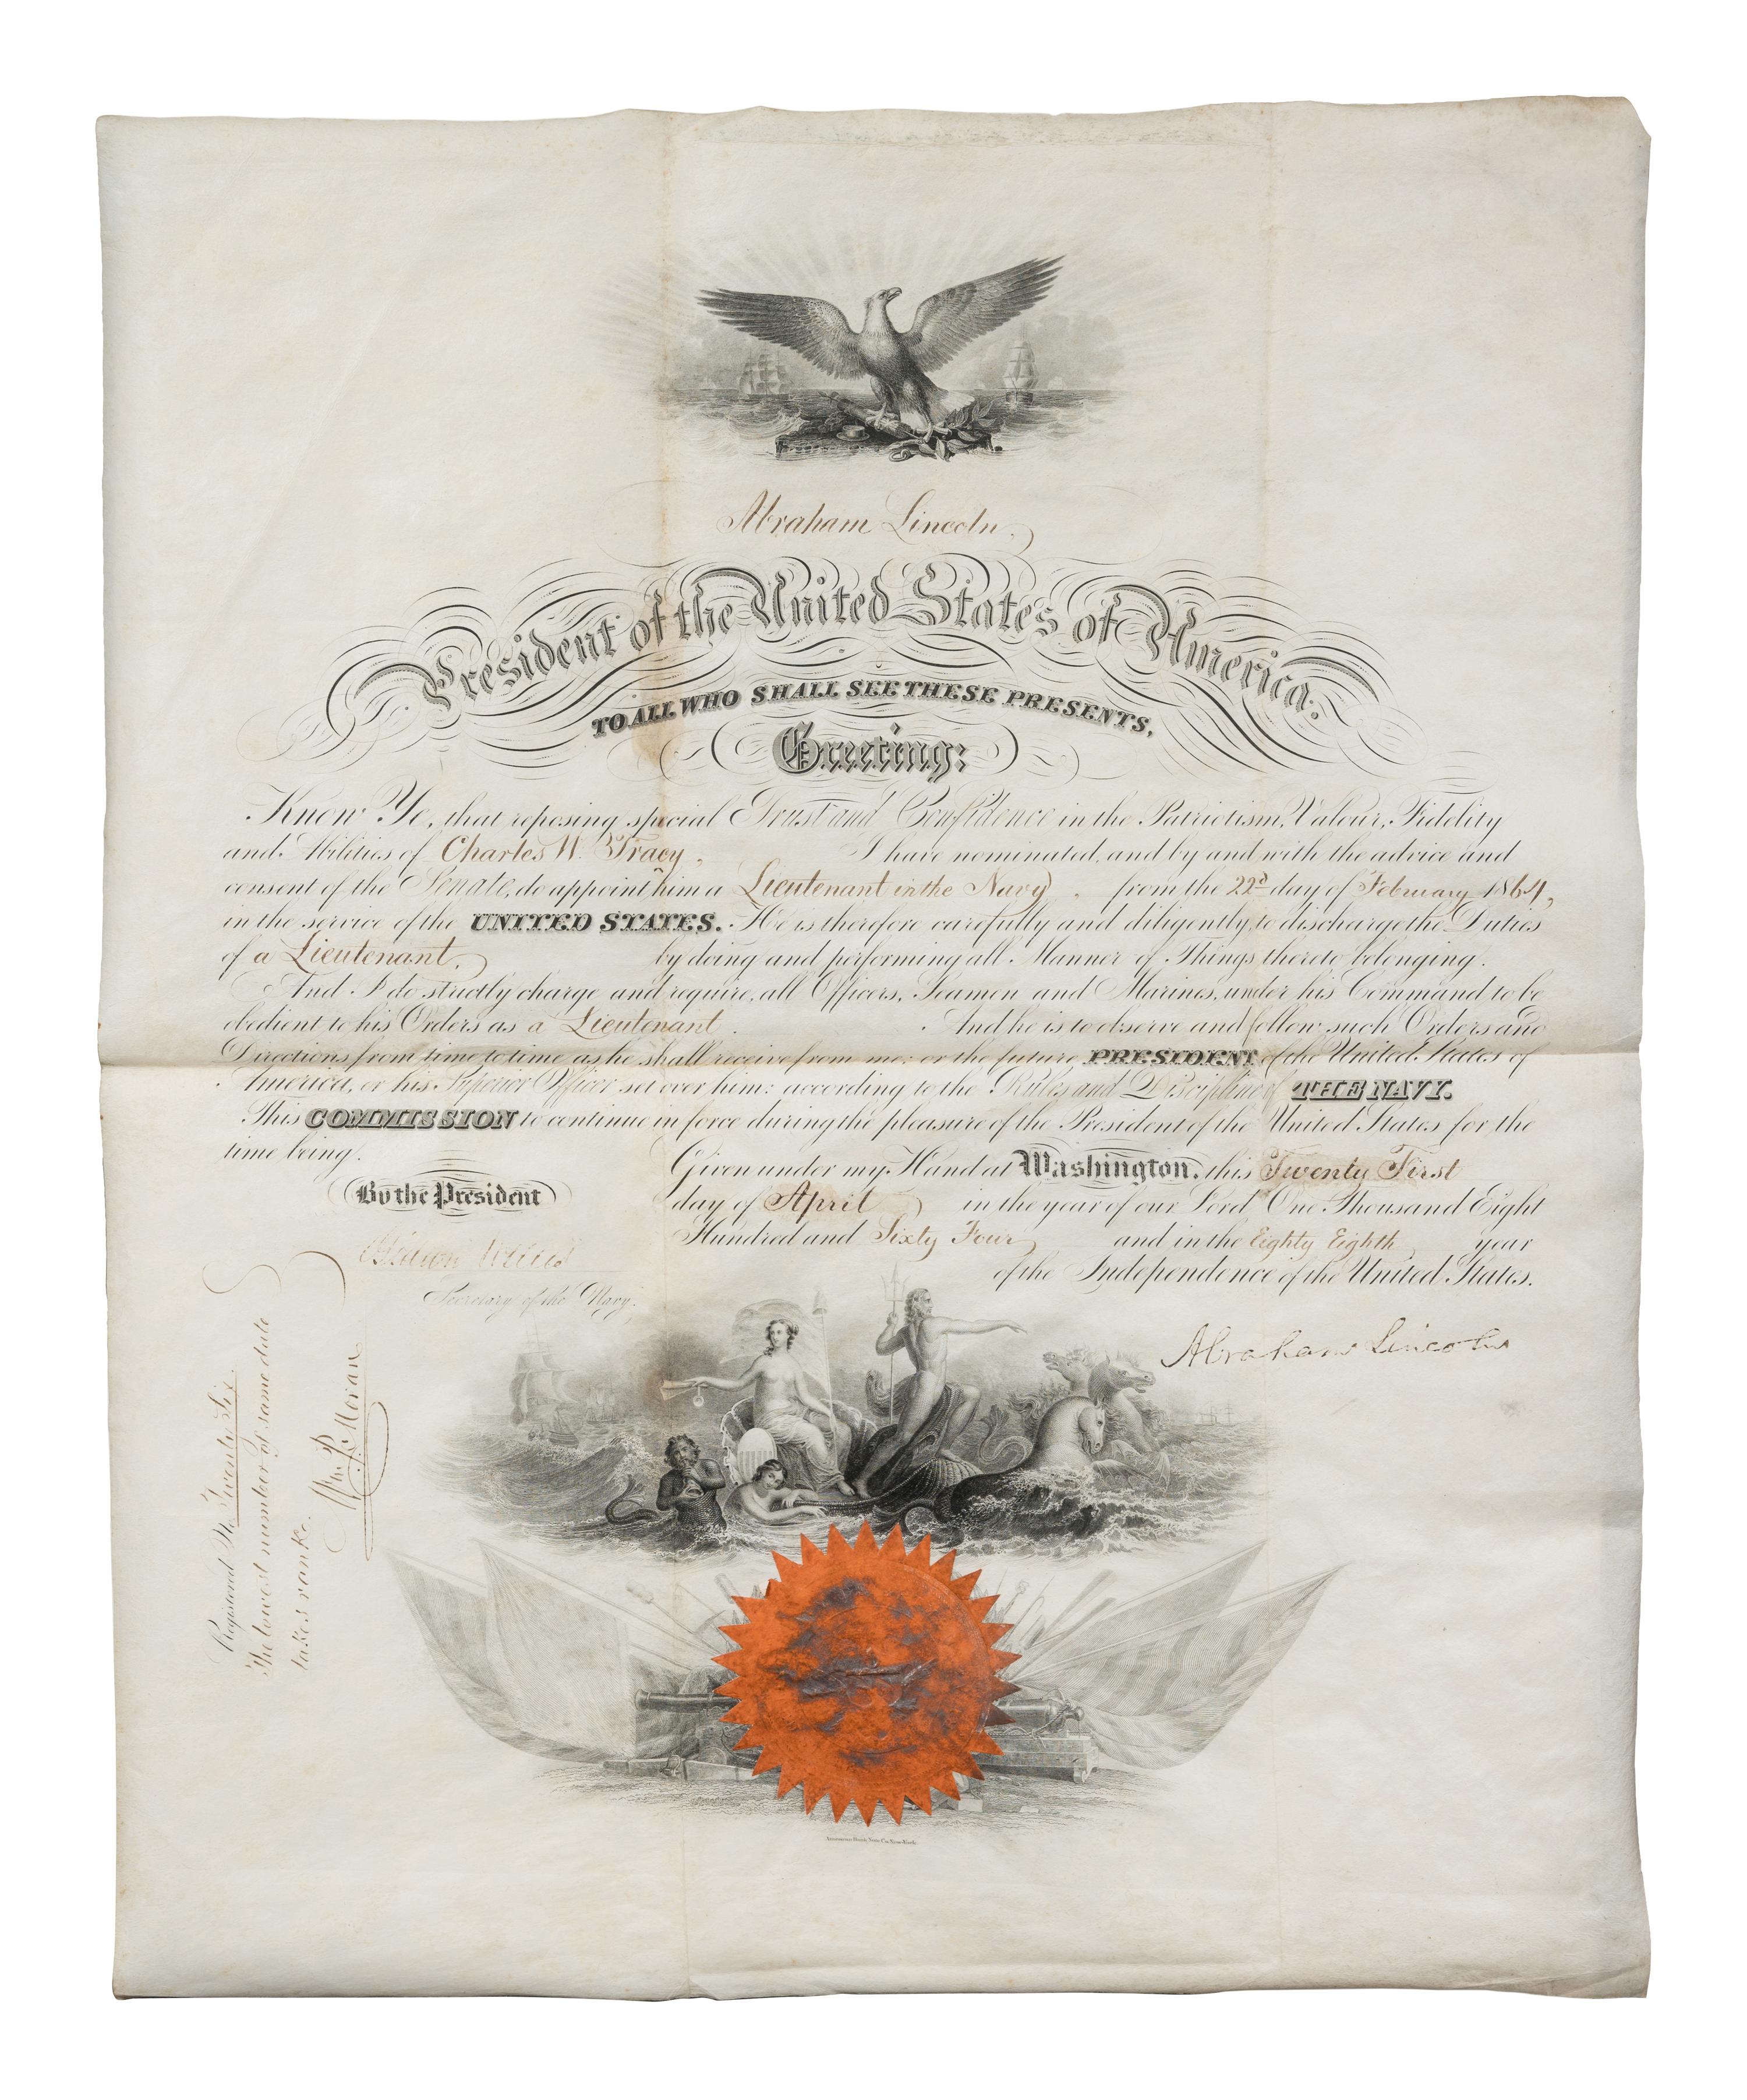 Abraham Lincoln,
President of the United States of America.
TO ALL WHO SHALL SEE THESE PRESENTS,
Greeting:
Know Ye, that reposing special Trust and Confidence in the Patriotism, Valour, Fidelity
and Abilities of Charles W. Tracy, I have nominated, and by and with the advice and
consent of the Senate, do appoint him a Lieutenant in the Navy, from the 22d day of February 1864,
in the service of the UNITED STATES. He is therefore carefully and diligently to discharge the Duties
of a Lieutenant, by doing and performing all Manner of Things thereto belonging.
And I do strictly charge and require, all Officers, Seamen and Marines, under his Command to be
obedient to his Orders as a Lieutenant. And he is to observe and follow such Orders and
Directions from time to time as he shall receive from me: or the future PRESIDENT of the United States of
America, or his Superior Officer set over him: according to the Rules and Discipline of THE NAVY.
This COMMISSION to continue in force during the pleasure of the President of the United States for the
time being.
Given under my Hand at Washington, this Twenty First
day of April in the year of our Lord One Thousand Eight
Hundred and Sixty Four, and in the Eighty Eighth year
of the Independence of the United States.
By the President
Gideon Welles
Secretary of the Navy.
Abraham Lincoln
Registered No. Twenty Six.
The lowest number of same date
takes rank.
Wm P. Moran
American Bank Note Co. New-York